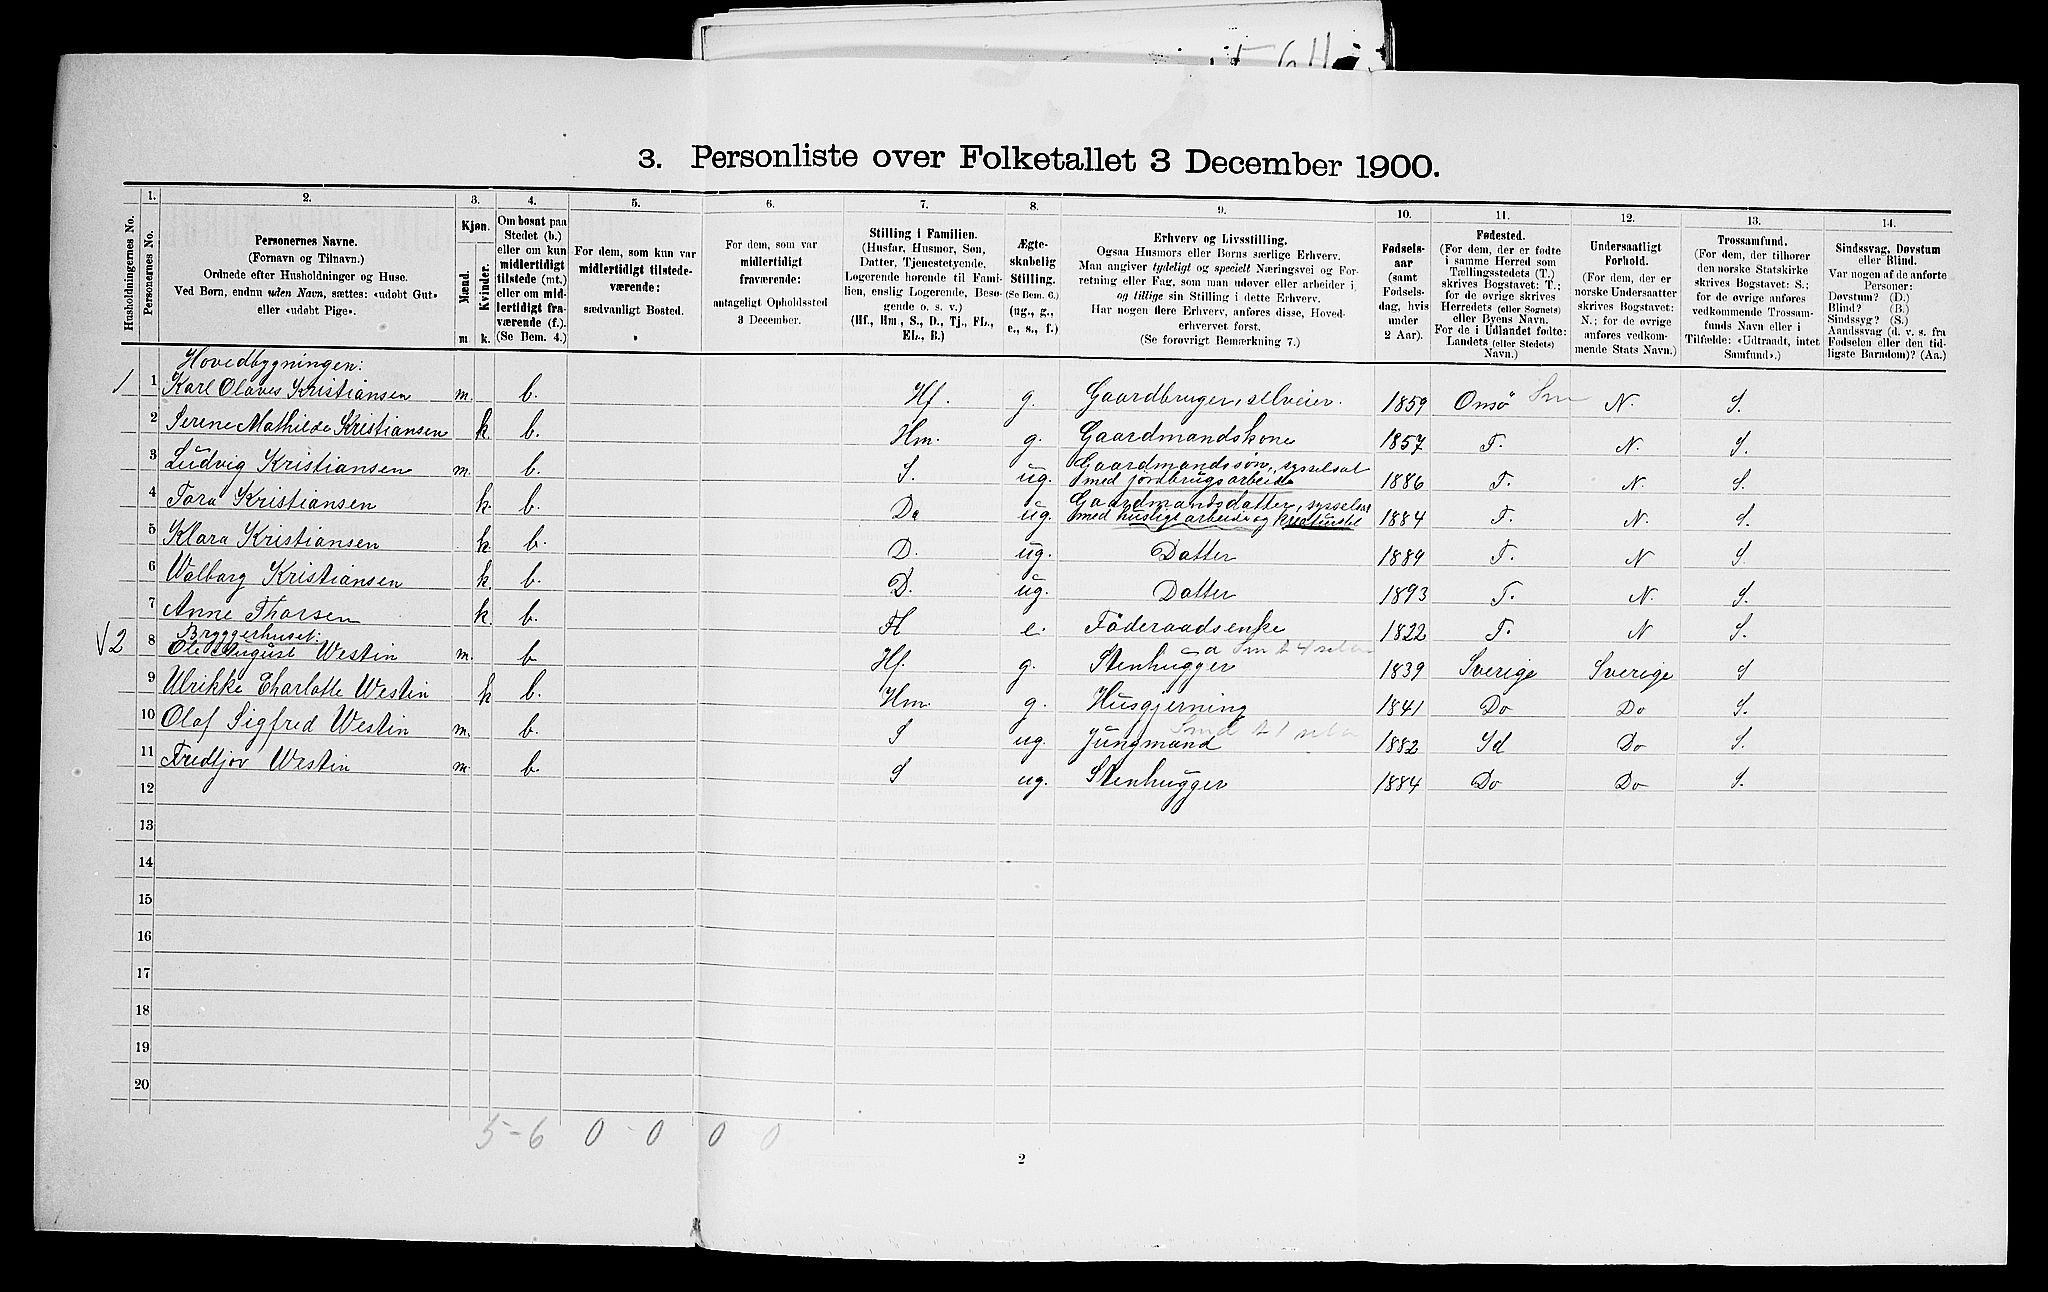 3. Personliste over Folketallet 3 December 1900.
1. 2. 3. 4. 5. 6. 7. 8. 9. 10. 11. 12. 13. 14.
Husholdningernes No.
Personernes No.
Personernes Navne.
(Fornavn og Tilnavn.)
Ordnede efter Husholdninger og Huse.
Ved Børn, endnu uden Navn, sættes: «udøbt Gut»
eller «udøbt Pige».
Kjøn.
Mænd.
Kvinder.
m. k.
Om bosat paa
Stedet (b.)
eller om kun
midlertidigt
tilstede (mt.)
eller om mid-
lertidigt fra-
værende (f.).
(Se Bem. 4.)
For dem, som kun var
midlertidigt tilstede-
værende:
sædvanligt Bosted.
For dem, som var
midlertidigt
fraværende:
antageligt Opholdssted
3 December.
Stilling i Familien.
(Husfar, Husmor, Søn,
Datter, Tjenestetyende,
Logerende hørende til Fami-
lien, enslig Logerende, Besø-
gende o. s. v.)
(Hf., Hm., S., D., Tj., FL.,
EL., B.)
Ægte-
skabelig
Stilling.
(Se Bem. 6.)
(ug., g.,
e., s., f.)
Erhverv og Livsstilling.
Ogsaa Husmors eller Børns særlige Erhverv.
Man angiver tydeligt og specielt Næringsvei og For-
retning eller Fag, som man udøver eller arbeider i,
og tillige sin Stilling i dette Erhverv.
Har nogen flere Erhverv, anføres disse, Hoved-
erhvervet først.
(Se forøvrigt Bemærkning 7.)
Fødsels-
aar
(samt
Fødsels-
dag, hvis
under
2 Aar).
Fødested.
(For dem, der er fødte
i samme Herred som
Tællingsstedets (T.)
skrives Bogstavet: T.;
for de øvrige skrives
Herredets (eller Sognets)
eller Byens Navn.
For de i Udlandet fødte:
Landets (eller Stedets)
Navn.)
Undersaatligt
Forhold.
(For dem, der er
norske Undersaatter
skrives Bogstavet:
N.; for de øvrige
anføres vedkom-
mende Stats Navn.)
Trossamfund.
(For dem, der tilhører
den norske Statskirke
skrives Bogstavet: S.;
for de øvrige anføres
vedkommende Trossam-
funds Navn eller i
Tilfælde: «Udtraadt, intet
Samfund».)
Sindssvag, Døvstum
eller Blind.
Var nogen af de anførte
Personer:
Døvstum? (D.)
Blind? (B.)
Sindssyg? (S.)
Aandssvag (d. v. s. fra
Fødselen eller den tid-
ligste Barndom)? (Aa.)
Hovedbygningen:
1 1 Karl Olaves Kristiansen m. b. Hf. g. Gaardbruger, selveier. 1859 Onsö N. S.
2 Serene Mathilde Kristiansen k. b. Hm. g. Gaardmandskone 1857 T. N. S.
3 Ludvig Kristiansen m. b. S. ug. Gaardmandssøn, sysselsat
med jordbrugsarbeide 1886 T. N. S.
4 Tora Kristiansen k. b. Do ug. Gaardmandsdatter, sysselsat
med husligt arbeide og kreaturstel 1884 T. N. S.
5 Klara Kristiansen k. b. D. ug. Datter 1889 T. N S.
6 Walborg Kristiansen k. b. D. ug. Datter 1893 T. N. S.
7 Anne Thorsen k. b. Fl e. Föderaadsenke 1822 T. N S.
Bryggerhuset:
2 8 Ole August Westin m. b Hf. g. Stenhugger 1839 Sverige Sverige S
9 Ulrikke Charlotte Westin k b. Hm. g. Husgjerning 1841 Do Do S.
10 Olaf Sigfred Westin m. b. S ug. Jungmand 1882 Id Do S.
11 Fredtjov Westin m. b. S ug. Stenhugger 1884 Do Do S.
12
13
14
15
16
17
18
19
20
5-6 0-0 0-0
2